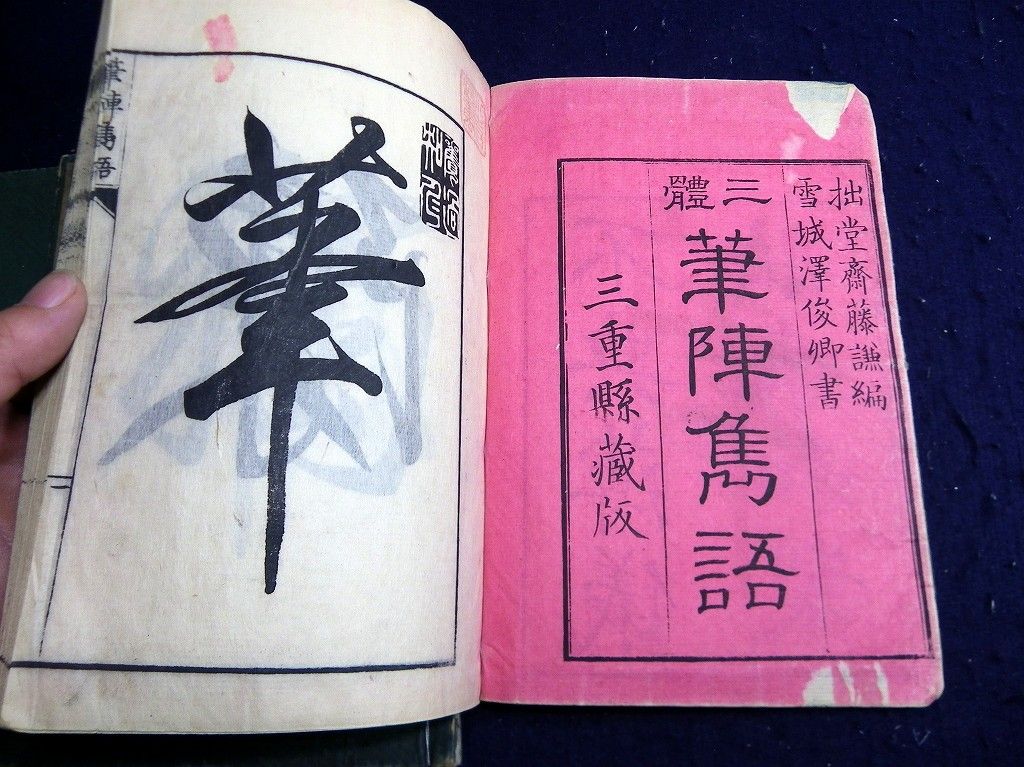 拙堂齋藤謙編
雪城澤俊卿書
三體
筆陣雋語
三重縣藏版
筆
筆陣雋語